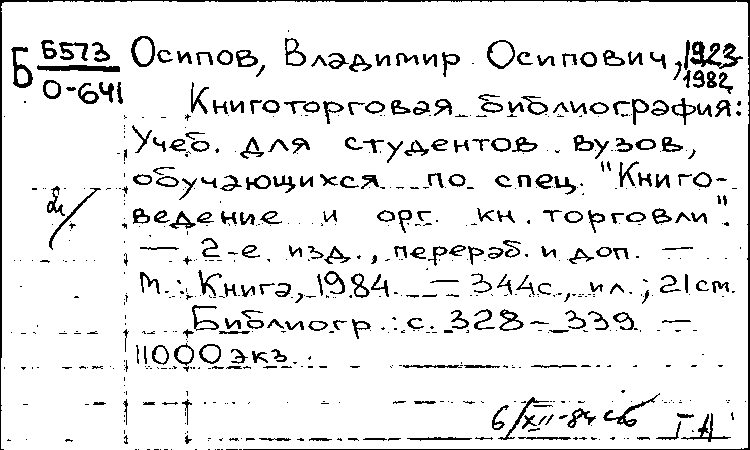 Б Б573 Осипов, Владимир Осипович, 1923-
О-641 1982
Книготорговая библиография:
Учеб. для студентов вузов,
обучающихся по спец. "Книго-
ведение и орг. кн. торговли".
— 2-е изд., перераб. и доп. —
М.: Книга, 1984. — 344с., ил.; 21см.
Библиогр.: с. 328-339 —
11000 экз.
6/XII-84